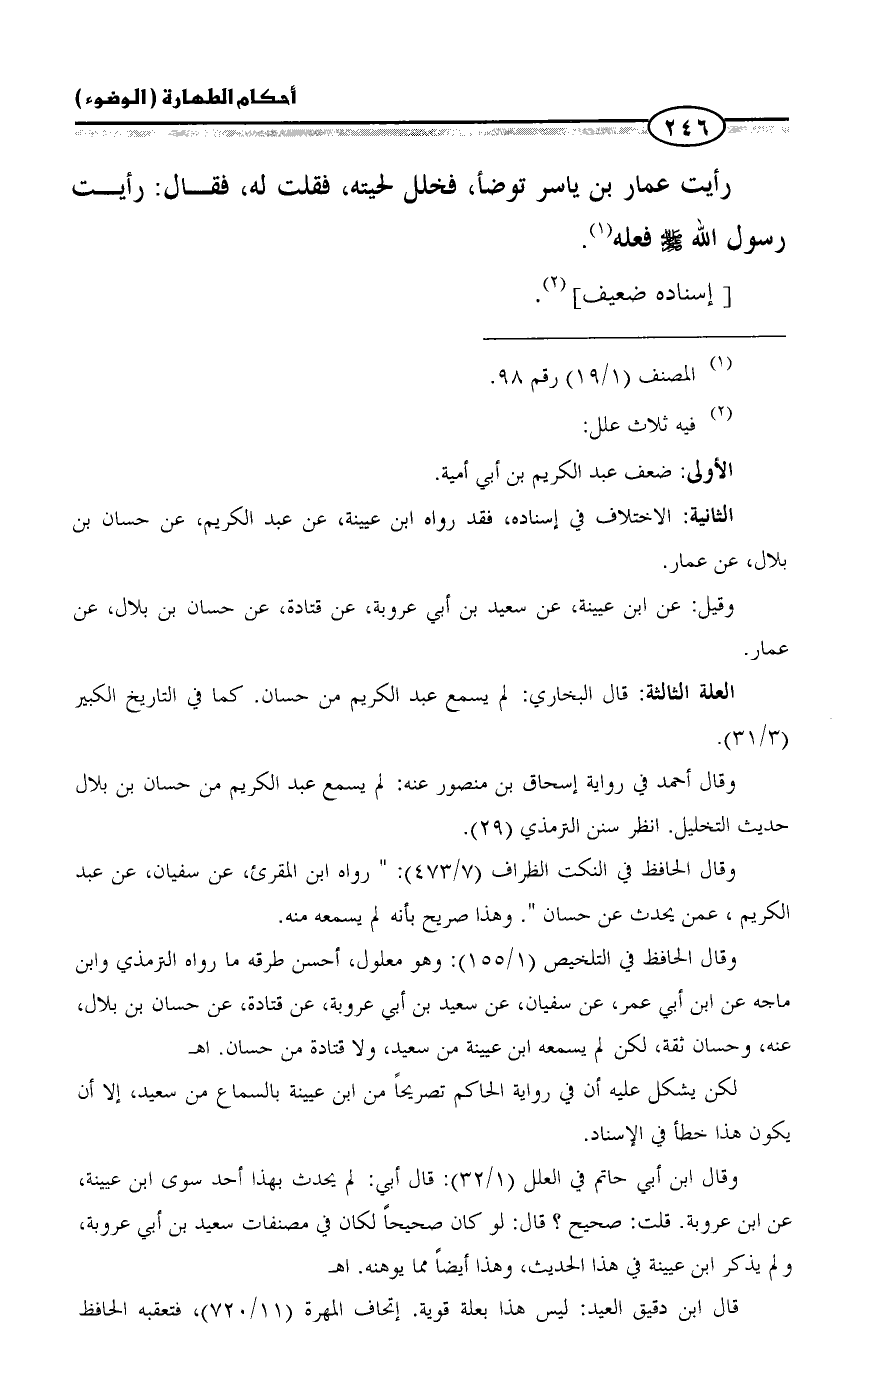 أحكام الطهارة (الوضوء)
٢٤٦
رأيت عمار بن ياسر توضأ، فخلل لحيته، فقلت له، فقـــال: رأيـــت
رسول الله ﷺ فعله(١).
[ إسناده ضعيف](٢).
(١) المصنف (١٩/١) رقم ٩٨.
(٢) فيه ثلاث علل:
الأولى: ضعف عبد الكريم بن أبي أمية.
الثانية: الاختلاف في إسناده، فقد رواه ابن عيينة، عن عبد الكريم، عن حسان بن
بلال، عن عمار.
وقيل: عن ابن عيينة، عن سعيد بن أبي عروبة، عن قتادة، عن حسان بن بلال، عن
عمار.
العلة الثالثة: قال البخاري: لم يسمع عبد الكريم من حسان. كما في التاريخ الكبير
(٣١/٣).
وقال أحمد في رواية إسحاق بن منصور عنه: لم يسمع عبد الكريم من حسان بن بلال
حديث التخليل. انظر سنن الترمذي (٢٩).
وقال الحافظ في النكت الظراف (٤٧٣/٧): " رواه ابن المقرئ، عن سفيان، عن عبد
الكريم ، عمن يحدث عن حسان ". وهذا صريح بأنه لم يسمعه منه.
وقال الحافظ في التلخيص (١٥٥/١): وهو معلول، أحسن طرقه ما رواه الترمذي وابن
ماجه عن ابن أبي عمر، عن سفيان، عن سعيد بن أبي عروبة، عن قتادة، عن حسان بن بلال،
عنه، وحسان ثقة، لكن لم يسمعه ابن عيينة من سعيد، ولا قتادة من حسان. اهـ
لكن يشكل عليه أن في رواية الحاكم تصريحاً من ابن عيينة بالسماع من سعيد، إلا أن
يكون هذا خطأ في الإسناد.
وقال ابن أبي حاتم في العلل (٣٢/١): قال أبي: لم يحدث بهذا أحد سوى ابن عيينة،
عن ابن عروبة. قلت: صحيح ؟ قال: لو كان صحيحاً لكان في مصنفات سعيد بن أبي عروبة،
ولم يذكر ابن عيينة في هذا الحديث، وهذا أيضاً مما يوهنه. اهـ
قال ابن دقيق العيد: ليس هذا بعلة قوية. إتحاف المهرة (٧٢٠/١١)، فتعقبه الحافظ